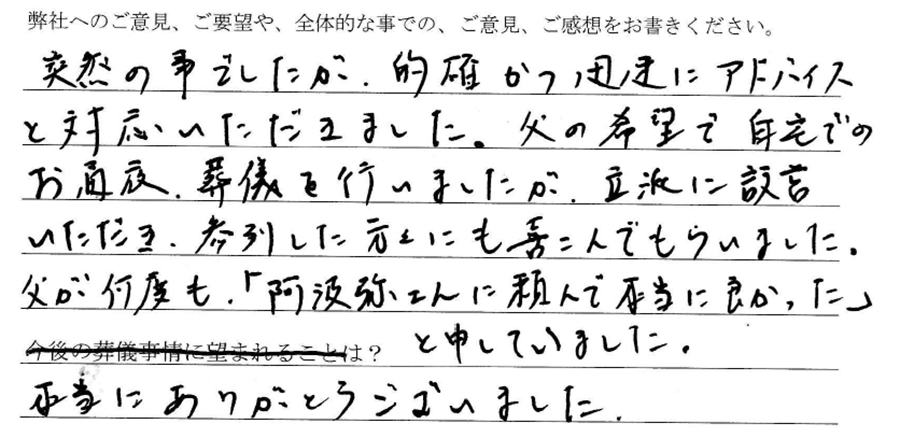 弊社へのご意見、ご要望や、全体的な事での、ご意見、ご感想をお書きください。
突然の事でしたが、的確かつ迅速にアドバイス
と対応いただきました。父の希望で自宅での
お通夜、葬儀を行いましたが、立派に設営
いただき、参列した方々にも喜こんでもらいました。
父が何度も、「阿波弥さんに頼んで本当に良かった」
と申していました。
今後の葬儀事情に望まれることは？
本当にありがとうございました。